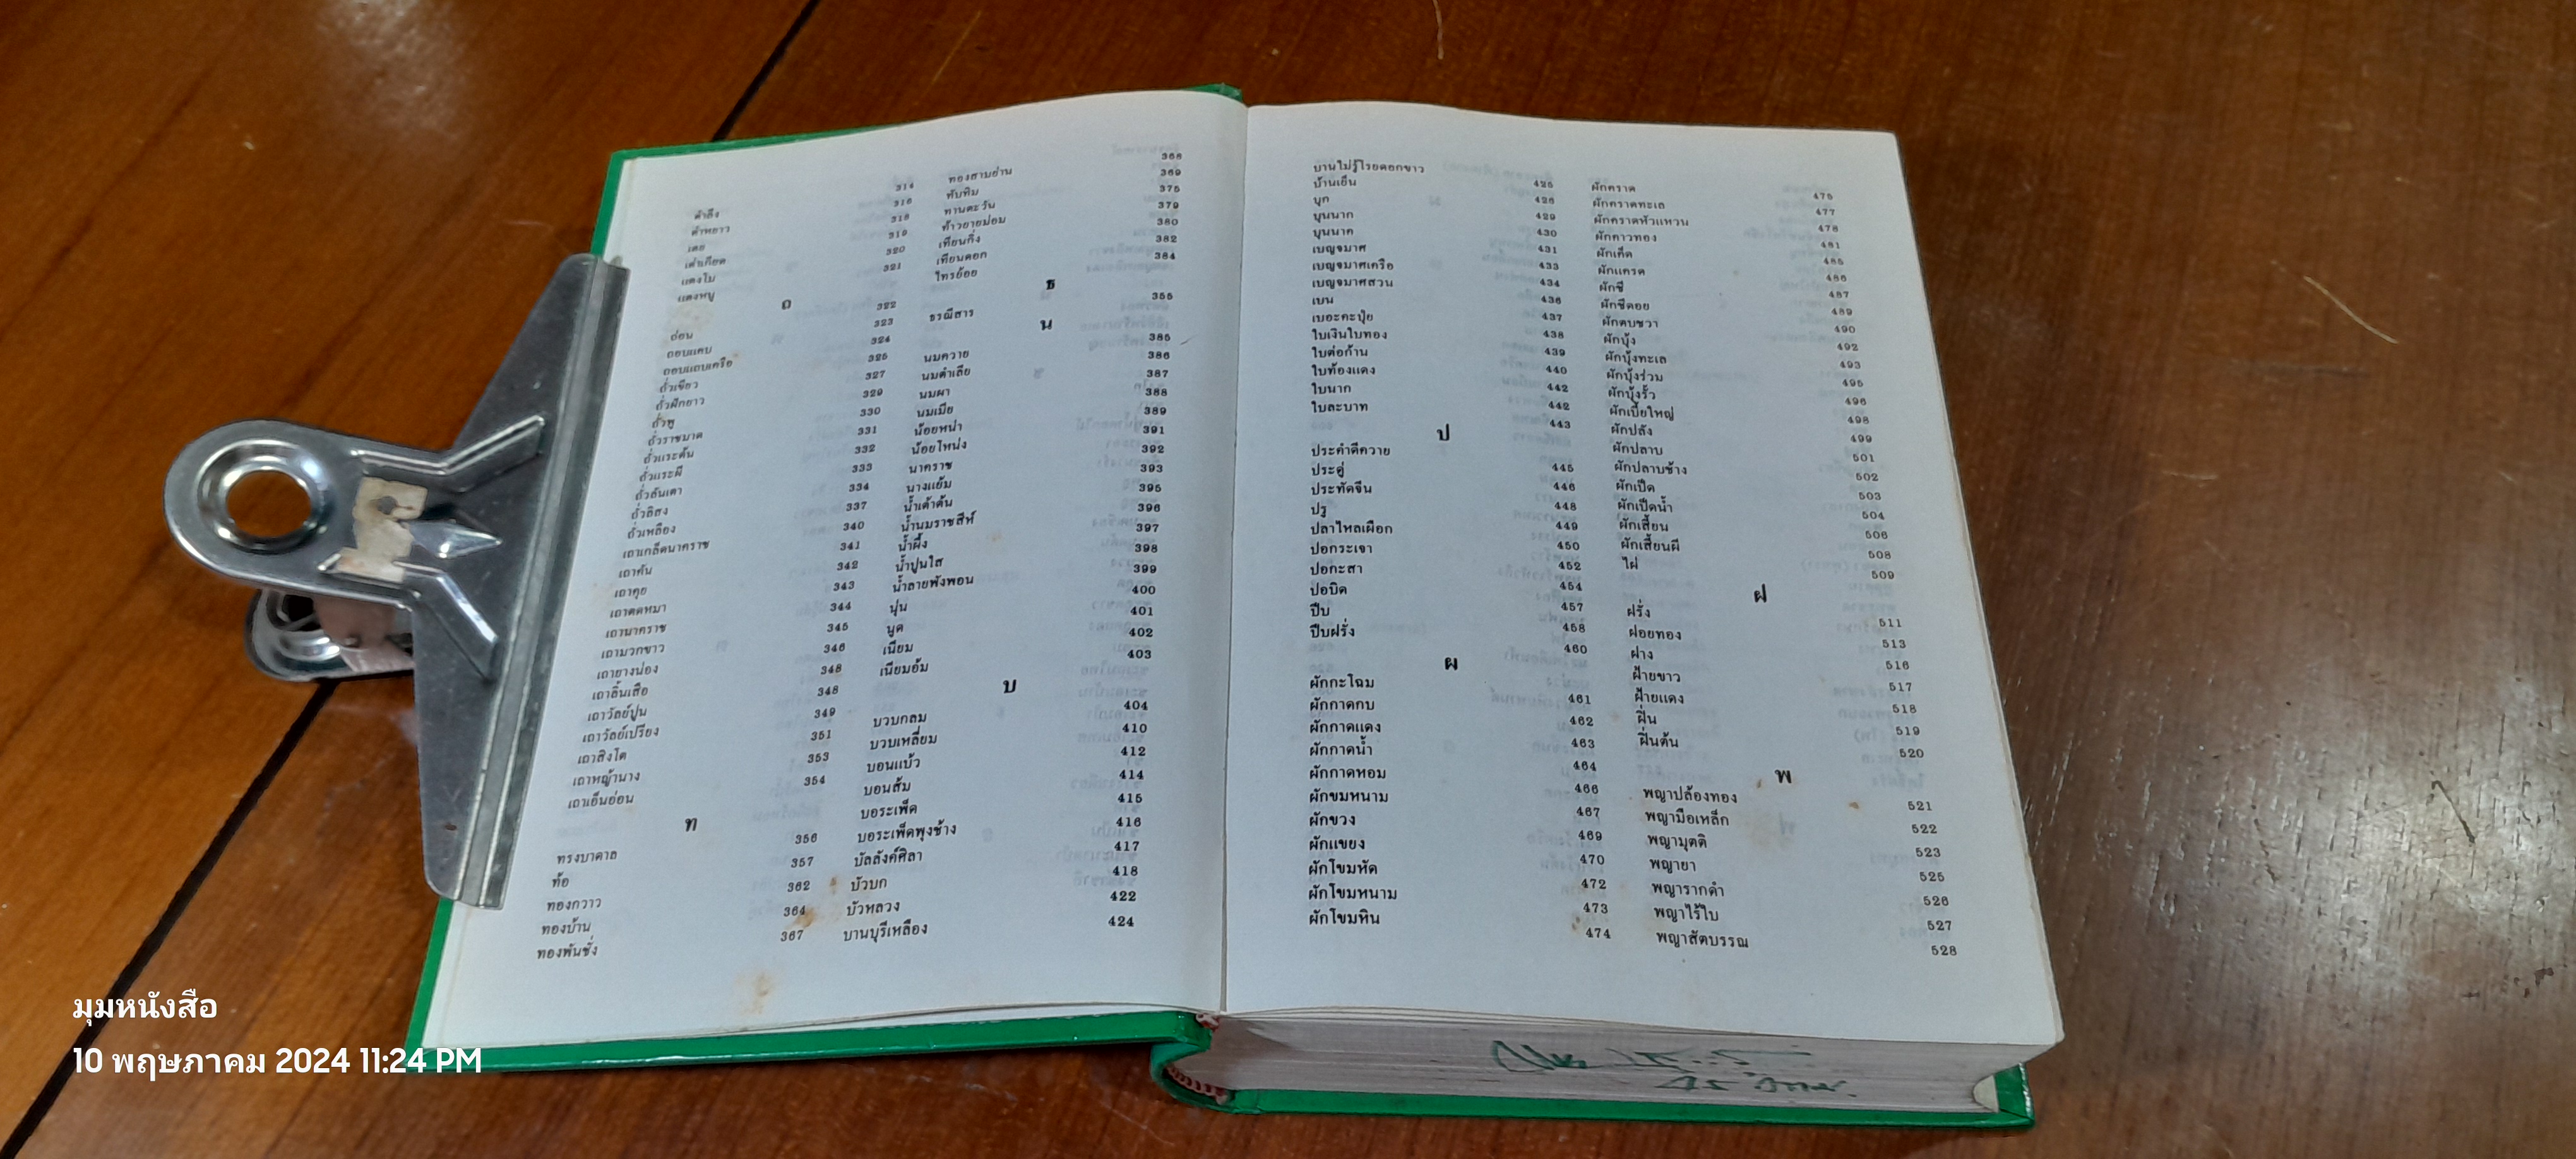 ตำลึง 314
ตำหยาว 316
เตย 318
เต่าเกียด 319
แตงโม 320
แตงหนู 321
ถ
ถ่อน 322
ถอบแถบ 323
ถอบแถบเครือ 324
ถั่วเขียว 325
ถั่วฝักยาว 327
ถั่วพู 329
ถั่วราชมาด 330
ถั่วแระต้น 331
ถั่วแระผี 332
ถั่วลันเตา 333
ถั่วลิสง 334
ถั่วเหลือง 337
เถาเกล็ดนาคราช 340
เถาคัน 341
เถาคุย 342
เถาตดหมา 343
เถานาคราช 344
เถามวกขาว 345
เถายางน่อง 346
เถาลิ้นเสือ 348
เถาวัลย์ปูน 348
เถาวัลย์เปรียง 349
เถาสิงโต 351
เถาหญ้านาง 353
เถาเอ็นอ่อน 354
ท
ทรงบาดาล 356
ท้อ 357
ทองกวาว 362
ทองบ้าน 364
ทองพันชั่ง 367
ทองสามย่าน 368
ทับทิม 369
ทานตะวัน 375
ท้าวยายม่อม 379
เทียนกิ่ง 380
เทียนดอก 382
ไทรย้อย 384
ธ
ธรณีสาร 355
น
นมควาย 385
นมตำเลีย 386
นมผา 387
นมเมีย 388
น้อยหน่า 389
น้อยโหน่ง 391
นาคราช 392
นางแย้ม 393
น้ำเต้าต้น 395
น้ำนมราชสีห์ 396
น้ำผึ้ง 397
น้ำปูนใส 398
น้ำลายพังพอน 399
นุ่น 400
นูด 401
เนียม 402
เนียมอ้ม 403
บ
บวบกลม 404
บวบเหลี่ยม 410
บอนแบ้ว 412
บอนส้ม 414
บอระเพ็ด 415
บอระเพ็ดพุงช้าง 416
บัลลังค์ศิลา 417
บัวบก 418
บัวหลวง 422
บานบุรีเหลือง 424
บานไม่รู้โรยดอกขาว 425
บ้านเย็น 426
บุก 429
บุนนาก 430
บุนนาค 431
เบญจมาศ 433
เบญจมาศเครือ 434
เบญจมาศสวน 436
เบน 437
เบอะคะปุ่ย 438
ใบเงินใบทอง 439
ใบต่อก้าน 440
ใบท้องแดง 442
ใบนาก 442
ใบละบาท 443
ป
ประคำดีควาย 445
ประดู่ 446
ประทัดจีน 448
ปรู 449
ปลาไหลเผือก 450
ปอกระเจา 452
ปอกะสา 454
ปอบิด 457
ปีบ 458
ปีบฝรั่ง 460
ผ
ผักกะโฉม 461
ผักกาดกบ 462
ผักกาดแดง 463
ผักกาดน้ำ 464
ผักกาดหอม 466
ผักขมหนาม 467
ผักขวง 469
ผักแขยง 470
ผักโขมหัด 472
ผักโขมหนาม 473
ผักโขมหิน 474
ผักคราด 475
ผักคราดทะเล 477
ผักคราดหัวแหวน 478
ผักคาวทอง 481
ผักเค็ด 485
ผักแครด 486
ผักชี 487
ผักชีดอย 489
ผักตบชวา 490
ผักบุ้ง 492
ผักบุ้งทะเล 493
ผักบุ้งร่วม 495
ผักบุ้งรั้ว 496
ผักเบี้ยใหญ่ 498
ผักปลัง 499
ผักปลาบ 501
ผักปลาบช้าง 502
ผักเป็ด 503
ผักเป็ดน้ำ 504
ผักเสี้ยน 506
ผักเสี้ยนผี 508
ไผ่ 509
ฝ
ฝรั่ง 511
ฝอยทอง 513
ฝาง 516
ฝ้ายขาว 517
ฝ้ายแดง 518
ฝิ่น 519
ฝิ่นต้น 520
พ
พญาปล้องทอง 521
พญามือเหล็ก 522
พญามุตติ 523
พญายา 525
พญารากดำ 526
พญาไร้ใบ 527
พญาสัตบรรณ 528
มุมหนังสือ
10 พฤษภาคม 2024 11:24 PM